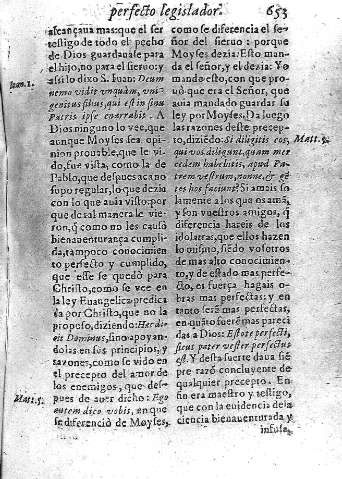 perfecto legislador. 653
alcançaua mas: que el ser
testigo de todo el pecho
de Dios guardauase para
el hijo, no para el sieruo: y
assi lo dixo S. Iuan: Deum
Ioan. 1.
nemo vidit vnquàm, vni-
genitus filius, qui est in sinu
Patris ipse enarrabit. A
Dios ninguno lo vee, que
aunque Moyses sea opi-
nion prouable, que le vi-
do, fue vista, como la de
Pablo, que despues acano
supo regular, lo que dezia
con lo que auia visto: por
que de tal manera le vie-
ron, q̃ como no les causò
bienauenturança cumpli-
da, tampoco conocimien
to perfecto y cumplido,
que esse se quedò para
Christo, como se vee en
la ley Euangelica predica
da por Christo, que no la
propuso, diziendo: Hęc di-
cit Dominus, sino apoyan-
dolas en sus principios, y
razones, como se vido en
el precepto del amor de
los enemigos, que des-
pues de auer dicho: Ego
Matt. 5.
autem dico vobis, en que
se diferenciò de Moyses,
como se diferencia el se-
ñor del sieruo: porque
Moyses dezia: Esto man-
da el señor, y el dezia: Yo
mando esto, con que pro-
uò que era el Señor, que
auia mandado guardas su
ley por Moyses. Da luego
las razones deste precep-
to, diziẽdo: Si diligitis eos,
Matt. 5.
qui vos diligunt, quam mer
cedem habebitis, apud Pa-
trem vestrum, nonne, & gẽ
tes hoc faciunt? Si amais so
lamente a los que os amã,
y son vuestros amigos, q̃
diferencia hazeis de los
idolatras, que ellos hazen
lo mismo, siẽdo vosotros
de mas alto conocimien-
to, y de estado mas perfe-
cto, es fuerça hagais o-
bras mas perfectas: y en
tanto serã mas perfectas,
en quãto fuerẽ mas pareci
das a Dios: Estote perfecti,
sicut pater vester perfectus
est. Y desta suerte daua siẽ
pre razõ concluyente de
qualquier precepto. En
fin era maestro y testigo,
que con la euidencia de la
ciencia bienauenturada y
infusa,